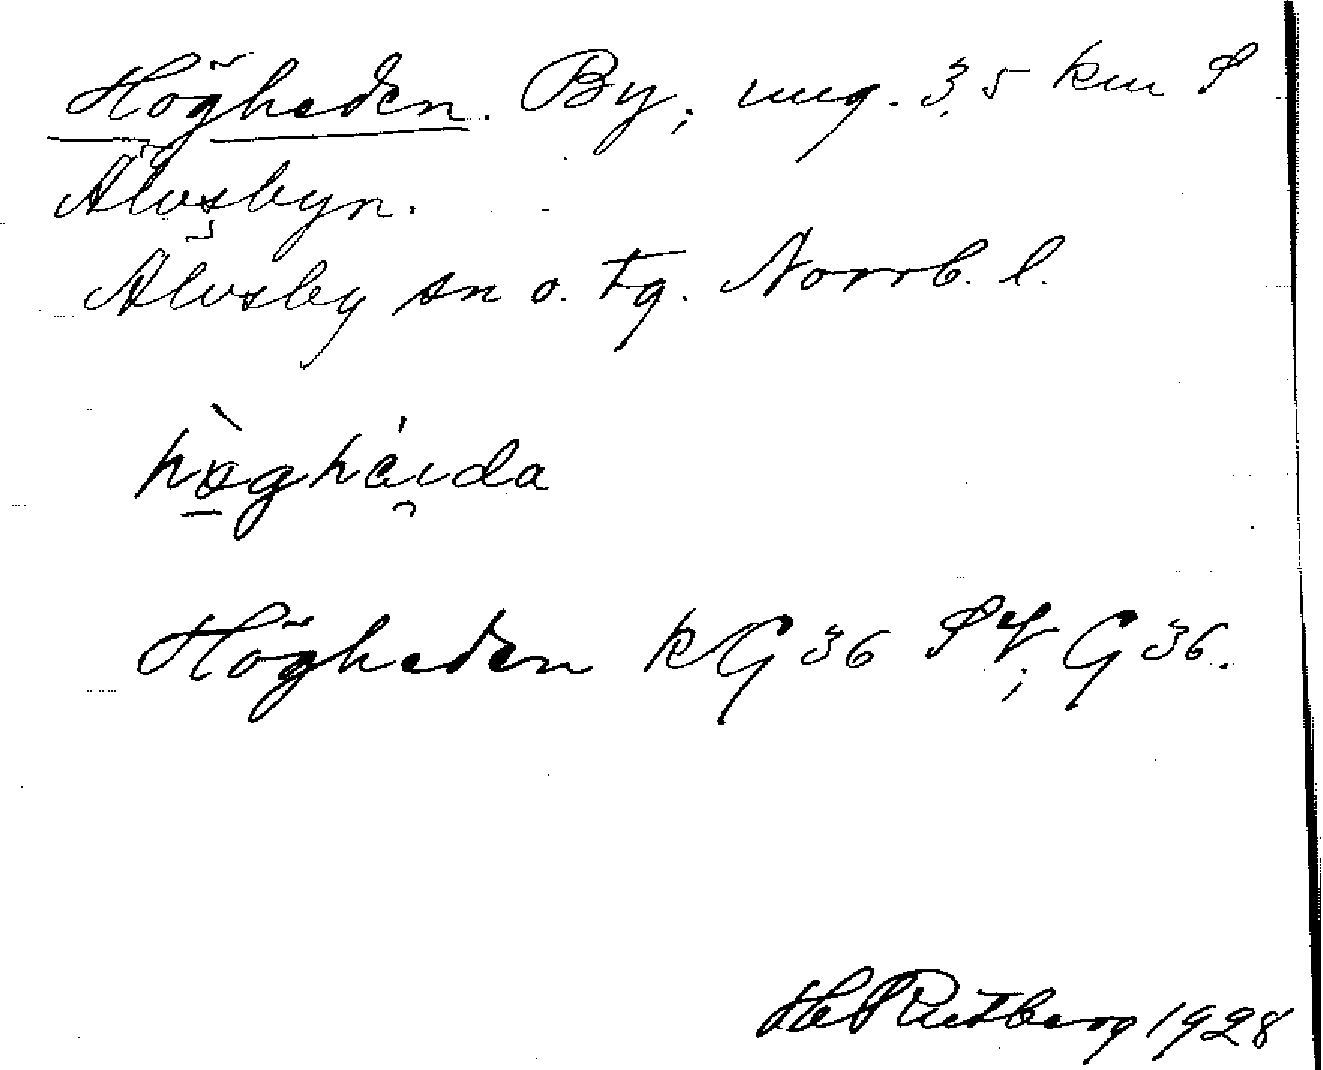 Högheden. By, ung. 3,5 km S
Älvsbyn.
Älvsby sn o. tg. Norrb. l.
hø̀ghái̯da
Högheden kG 36 SV; G 36.
H S Rutberg 1928